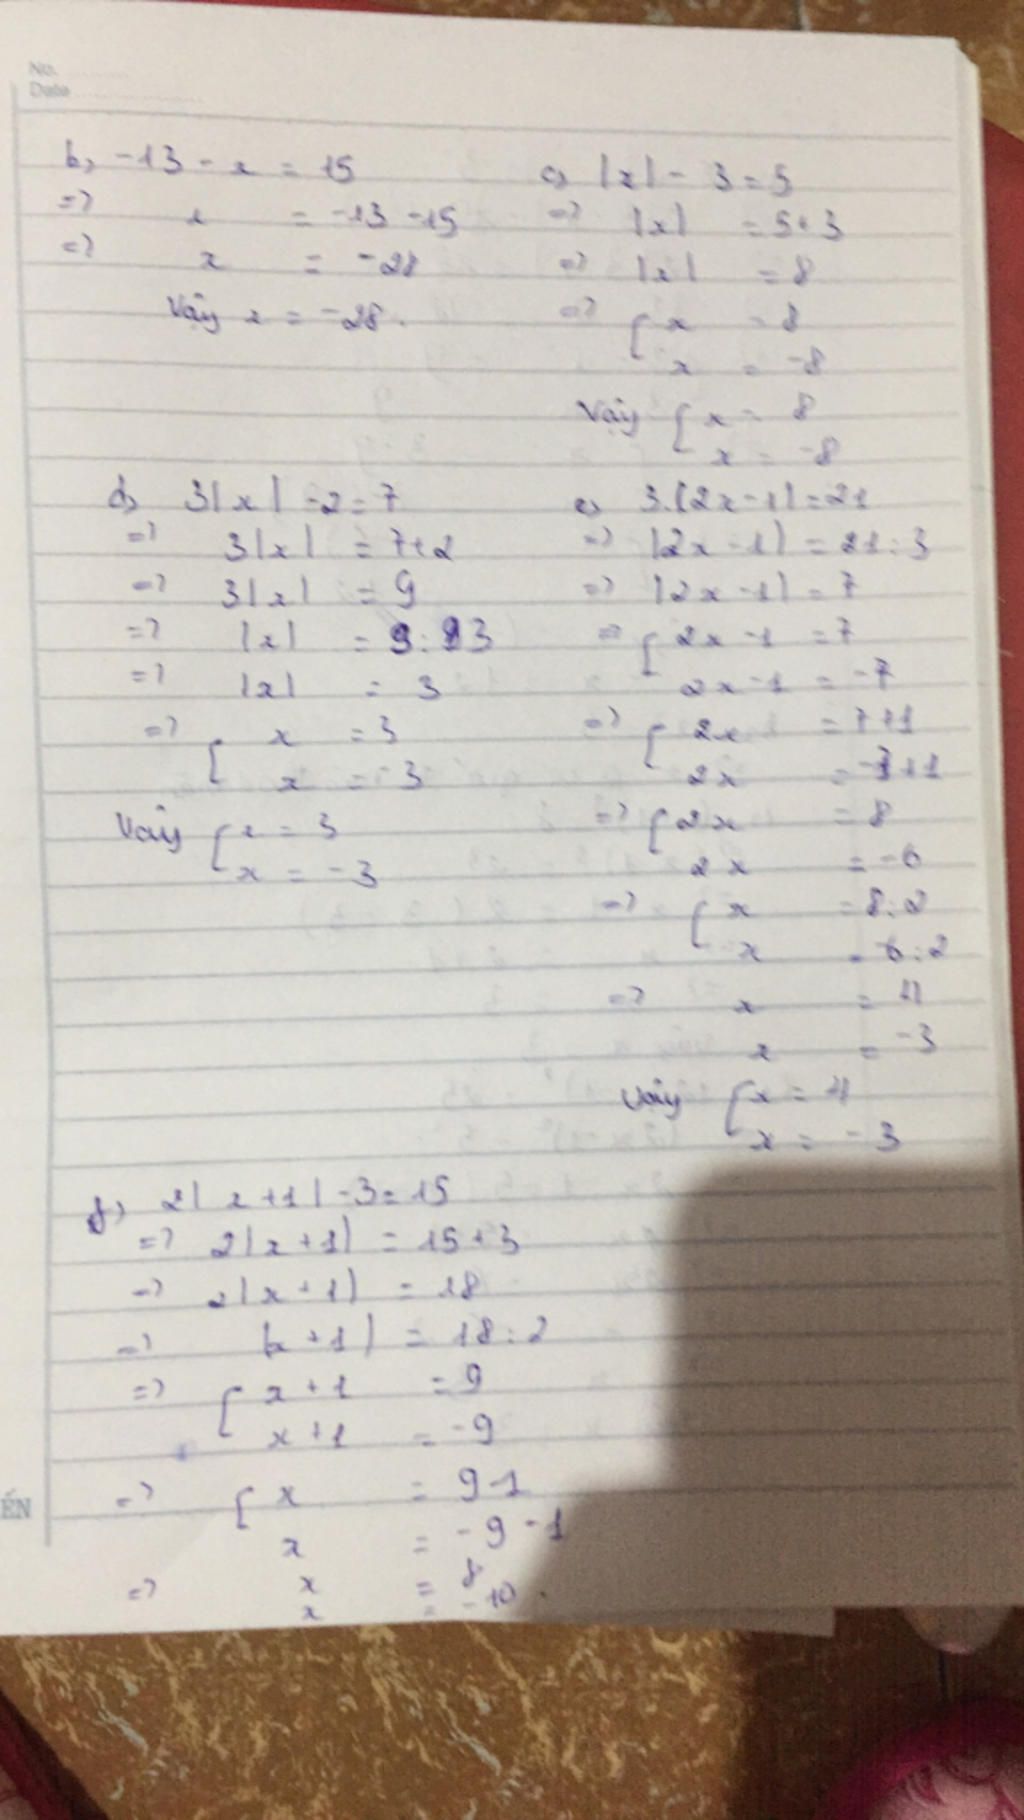 No.
Date
b, -13 - x = 15
=> x = -13 -15
=> x = -28
Vậy x = -28.
c, |x| - 3 = 5
=> |x| = 5+3
=> |x| = 8
=> [ x = 8
x = -8
Vậy [ x = 8
x = -8
d, 3|x| -2 = 7
=> 3|x| = 7+2
=> 3|x| = 9
=> |x| = 9:3
=> |x| = 3
=> [ x = 3
x = -3
Vậy [ x = 3
x = -3
e, 3.|2x-1| = 21
=> |2x-1| = 21:3
=> |2x-1| = 7
=> [ 2x-1 = 7
2x-1 = -7
=> [ 2x = 7+1
2x = -7+1
=> [ 2x = 8
2x = -6
=> [ x = 8:2
x = -6:2
=> x = 4
x = -3
Vậy [ x = 4
x = -3
f, 2|x+1| -3 = 15
=> 2|x+1| = 15+3
=> 2|x+1| = 18
=> |x+1| = 18:2
=> [ x+1 = 9
x+1 = -9
=> [ x = 9-1
x = -9-1
=> x = 8
x = -10.
ẾN